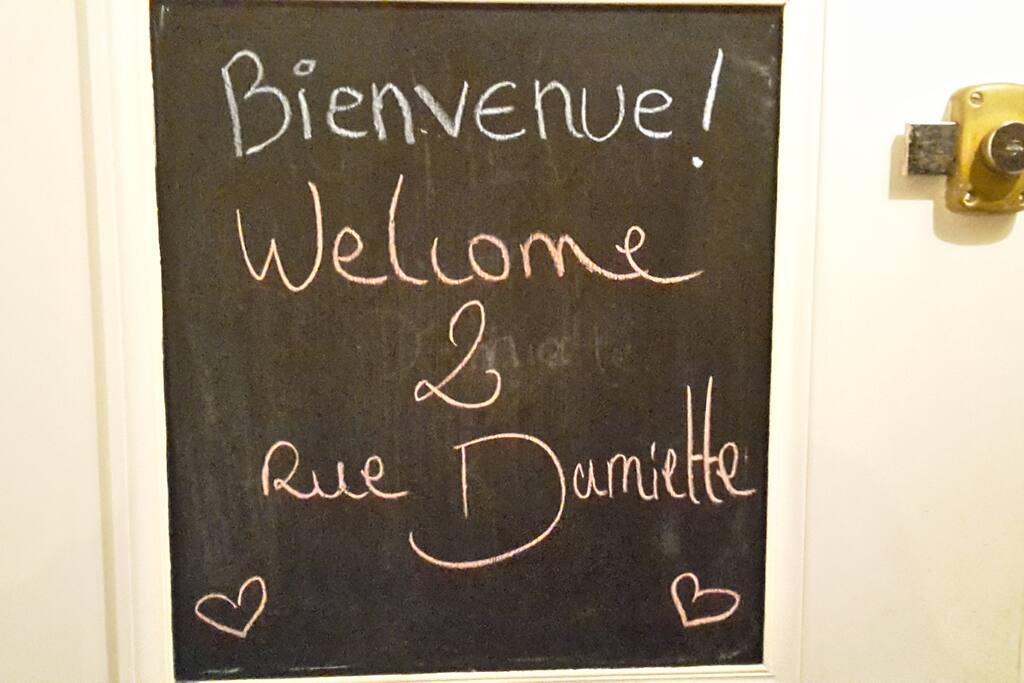 Bienvenue!
Welcome
2
Rue Damiette